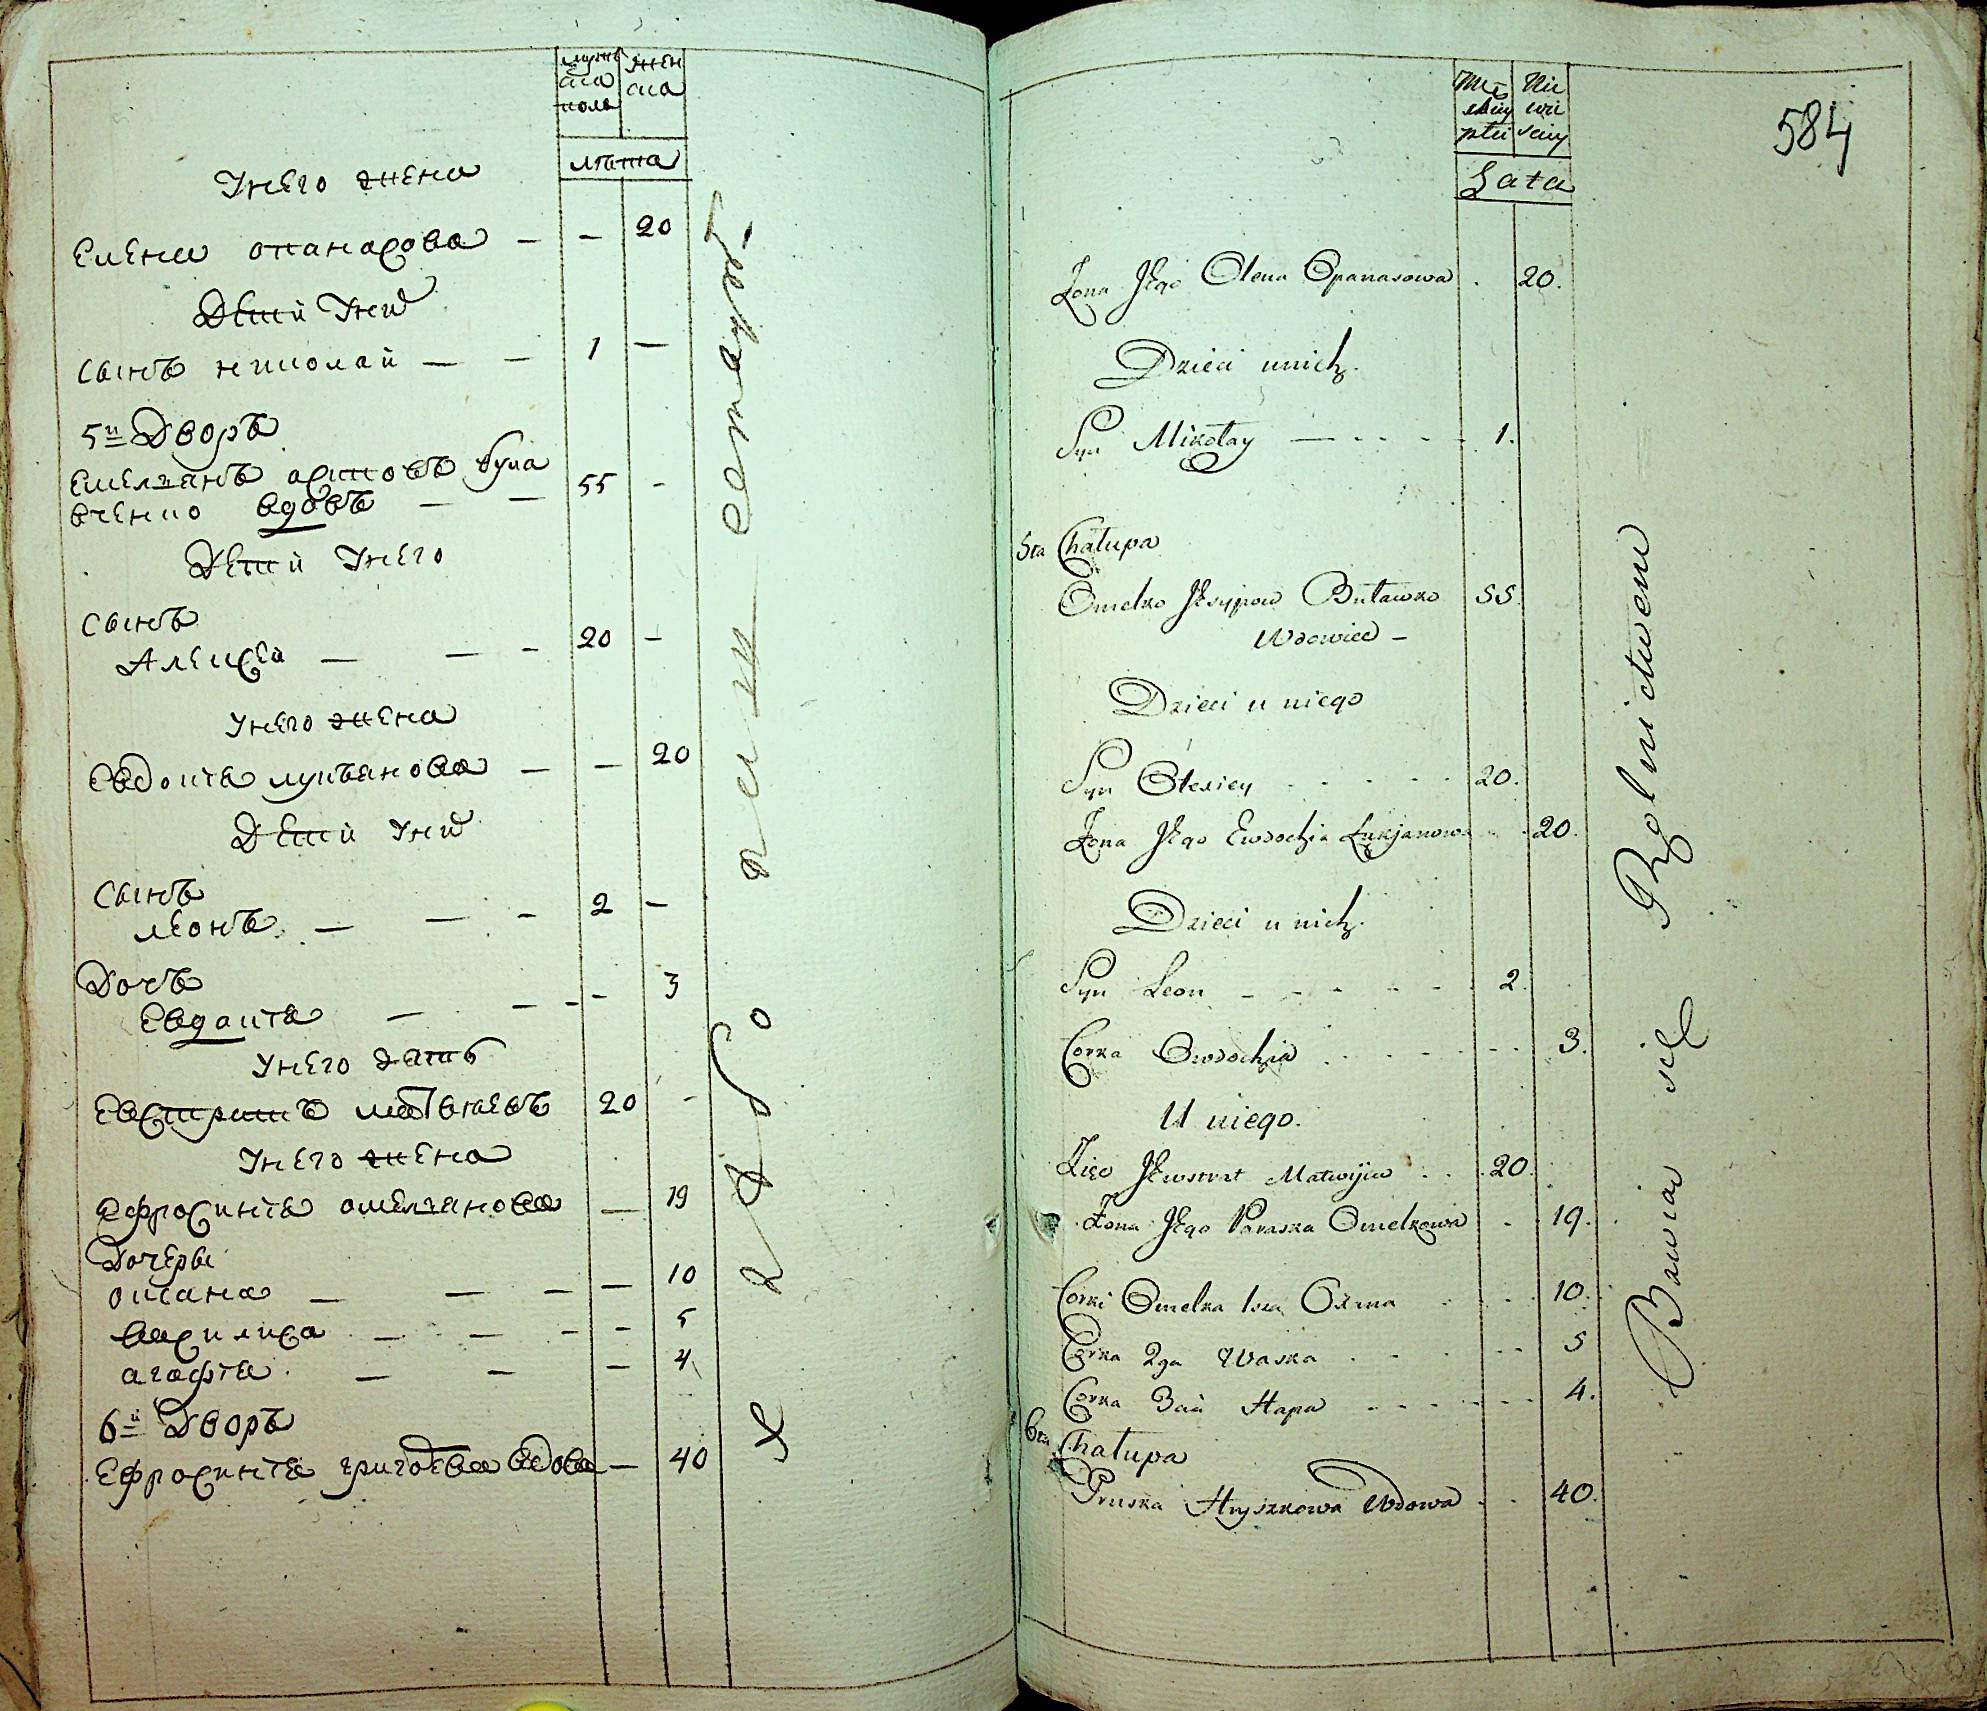 мужес
ска
полъ
жен
ска
лѣта
У него жена
Елена опанасова — — 20
Дети У них
Сынъ николай — — 1 —
5й Дворъ
Емелянъ осиповъ була
вченко вдовъ — — 55 -
Дети У него
Сынъ
Алексей — — - 20 —
У него жена
Евдокия лукьянова — — 20
Дети У них
Сынъ
леонъ — — - 2 —
Дочь
Евдокия — — - - 3
У него зать
Евстратъ матвиевъ 20 -
У него жена
Ефросиния омелянова — 19
Дочеры
оксана — — — — 10
василиса — — - - 5
агафия — — — 4
6й Дворъ
Ефросиния григоева вдова — 40
хлебо пашеством
Mę
skiey
płci
Nie
wie
sciey
Lata
584
Żona Jego Olena Opanasowa . 20.
Dzieci u nich.
Syn Mikołay — - - - 1.
5ta Chałupa
Omelko Jesypow Buławko 55.
Wdowiec –
Dzieci u niego
Syn Olexiey - - - - - 20.
Żona Jego Ewdochia Łukjanowa - . 20.
Dzieci u nich.
Syn Leon - - - - - 2.
Corka Owdochia . . - - - - - 3.
U niego.
Zięć Jewstrat Matwijiw . . 20.
Żona Jego Paraska Omelkowa . . 19.
Corki Omelka 1sza Oxena . . . . 10.
Corka 2ga Waska . . . - - 5
Corka 3cia Hapa - - - - - - 4.
6ta Chałupa
Pruska Hryszkowa Wdowa . . 40.
Bawią się Rolnictwem